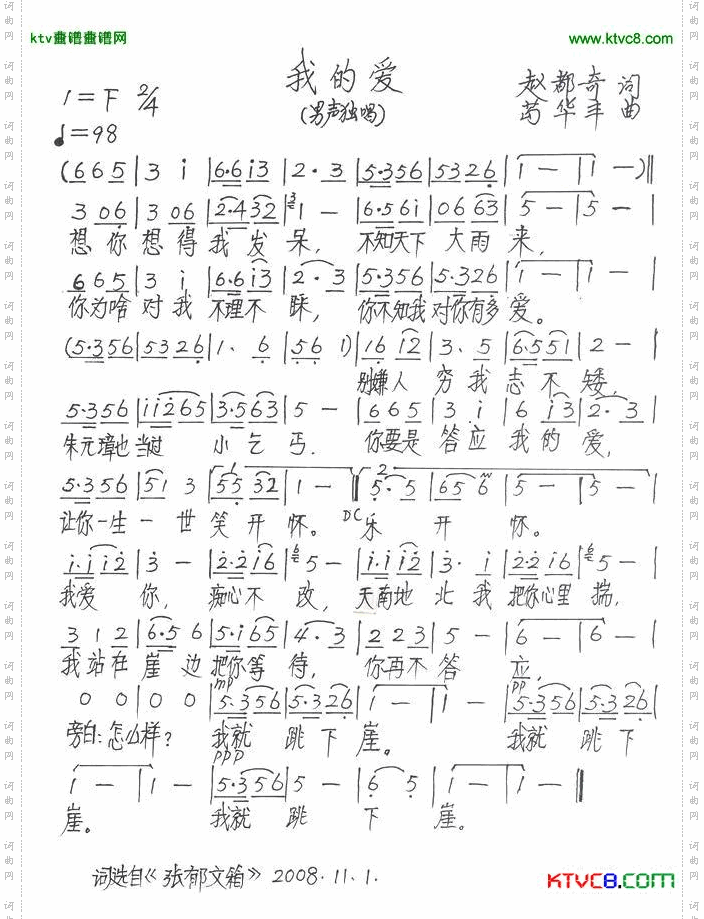 ktv歌谱歌谱网
www.ktvc8.com
我的爱
(男声独唱)
赵都奇 词
苟华丰 曲
1=F 2/4
♩=98
(6 6 5 | 3 i | 6·6 i3 | 2·3 | 5·356 | 5326 | 1 — | 1 —)‖
3 06 | 3 06 | 2·432 | 1 — | 6·561 | 06 63 | 5 — | 5 — |
想你想得我发呆, 不知天下大雨来,
6 6 5 | 3 i | 6·6 i3 | 2·3 | 5·356 | 5·326 | 1 — | 1 — |
你为啥对我不理不睬, 你不知我对你有多爱。
(5·356 | 5326 | 1、6 | 56 1) | 16 i2 | 3、5 | 6·551 | 2 — |
别嫌人穷我志不矮,
5·356 | ii265 | 3·563 | 5 — | 6 6 5 | 3 i | 6 i3 | 2·3 |
朱元璋也当过小乞丐. 你要是答应我的爱,
5·356 | 51 3 | 55 32 | 1 — ‖ 5·5 | 65 6 | 5 — | 5 — |
让你一生一世笑开怀。 DC 乐开怀。
i·i i2 | 3 — | 2·2 i6 | 5 — | i·i i2 | 3· i | 2·2 i6 | 5 — |
我爱你, 痴心不改, 天南地北我把你心里揣,
3 1 2 | 6·5 6 | 5·i65 | 4·3 | 2 2 3 | 5 — | 6 — | 6 — |
我站在崖边把你等待, 你再不答应,
mp pp
0 0 | 0 0 | 5·356 | 5·326 | 1 — | 1 — | 5·356 | 5·326 |
旁白:怎么样? 我就跳下崖。 我就跳下
ppp
1 — | 1 — | 5·356 | 5 — | 6 5 | 1 — | 1 — ‖
崖。 我就跳下崖。
词选自《张郁文箱》2008.11.1.
KTVC8.COM